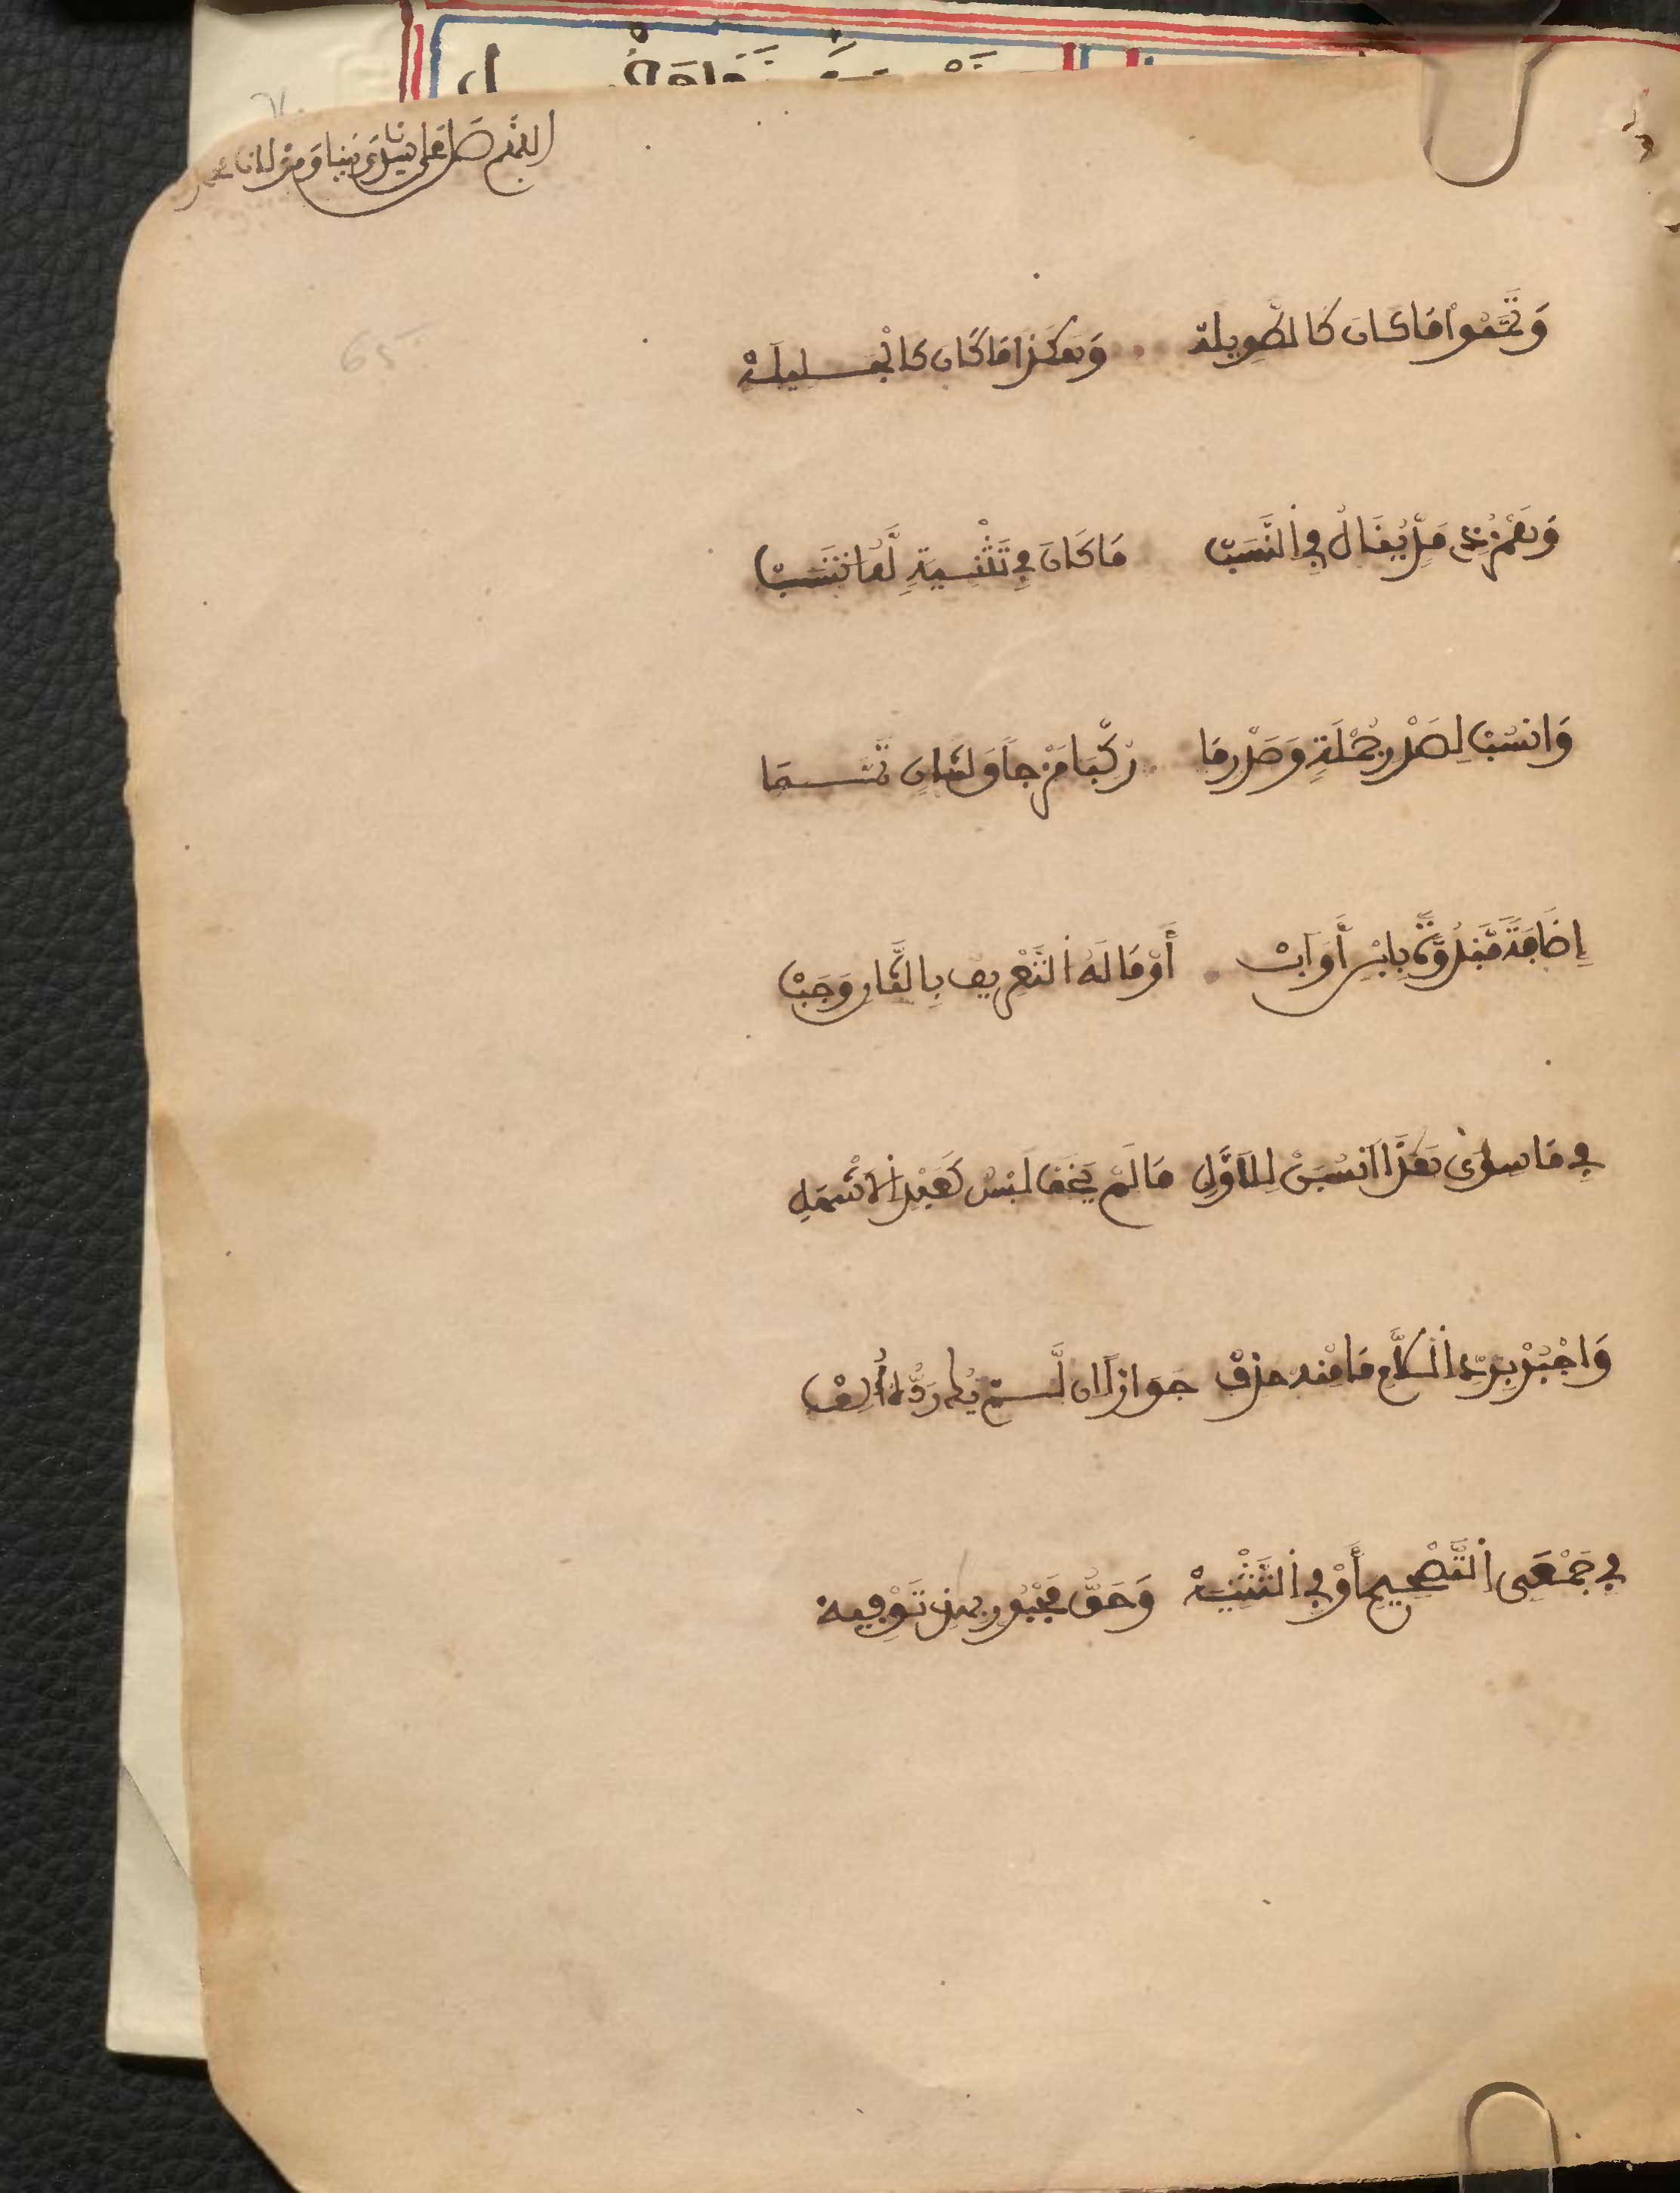 اللهم صل على سيدنا نبينا ومولانا محمد
65
وَتَمَّمُوا مَا كَانَ كَالطَّوِيلَهْ وَهَكَذَا مَا كَانَ كَالْجَلِيلَهْ
وَهَمْزُ ذِي مَدٍّ يُنَالُ فِي النَّسَبْ مَا كَانَ فِي تَثْنِيَةٍ لَّهُ انْتَسَبْ
وَانْسُبْ لِصَدْرِ جُمْلَةٍ وَصَدْرِ مَا رُكِّبَ مَزْجاً وَلِثَانٍ تَمَّمَا
إِضَافَةً مَّبْدُوَّةً بِابْنٍ أَوَ ابْ أَوْ مَا لَهُ التَّعْرِيفُ بِالثَّانِ وَجَبْ
فِي مَا سِوَى هَذَا انْسُبَنْ لِلْأَوَّلِ مَا لَمْ يُخَفْ لَبْسٌ كَعَبْدِ الْأَشْهَلِ
وَاجْبُرْ بِرَدِّ اللَّامِ مَا مِنْهُ حُذِفْ جَوَازاً ان لَّمْ يَكُ رَدُّهُ أُلِفْ
فِي جَمْعَيِ التَّصْحِيحِ أَوْ فِي التَّثْنِيَهْ وَحَقُّ مَجْبُورٍ بِهَذِي تَوْفِيَهْ